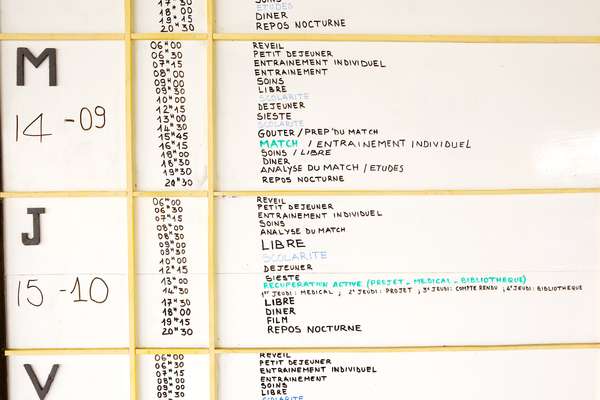 ETUDES
18H00
DINER
19H15
REPOS NOCTURNE
20H30
M
14 -09
06H00
REVEIL
06H30
PETIT DEJEUNER
07H15
ENTRAINEMENT INDIVIDUEL
08H00
ENTRAINEMENT
09H00
SOINS
09H30
LIBRE
10H00
SCOLARITE
12H15
DEJEUNER
13H00
SIESTE
14H30
SCOLARITE
15H45
GOUTER / PREP' DU MATCH
16H15
MATCH / ENTRAINEMENT INDIVIDUEL
18H00
SOINS / LIBRE
18H30
DINER
19H30
ANALYSE DU MATCH / ETUDES
20H30
REPOS NOCTURNE
J
15 -10
06H00
REVEIL
06H30
PETIT DEJEUNER
07H15
ENTRAINEMENT INDIVIDUEL
08H00
SOINS
08H30
ANALYSE DU MATCH
09H00
LIBRE
09H30
SCOLARITE
10H00
12H15
DEJEUNER
13H00
SIESTE
14H30
RECUPERATION ACTIVE (PROJET - MEDICAL - BIBLIOTHEQUE)
1er JEUDI: MEDICAL ; 2e JEUDI: PROJET ; 3e JEUDI: COMPTE RENDU ; 4e JEUDI: BIBLIOTHEQUE
17H30
LIBRE
18H00
DINER
19H15
FILM
20H30
REPOS NOCTURNE
V
06H00
REVEIL
06H30
PETIT DEJEUNER
07H15
ENTRAINEMENT INDIVIDUEL
08H00
ENTRAINEMENT
09H00
SOINS
09H30
LIBRE
SCOLARITE